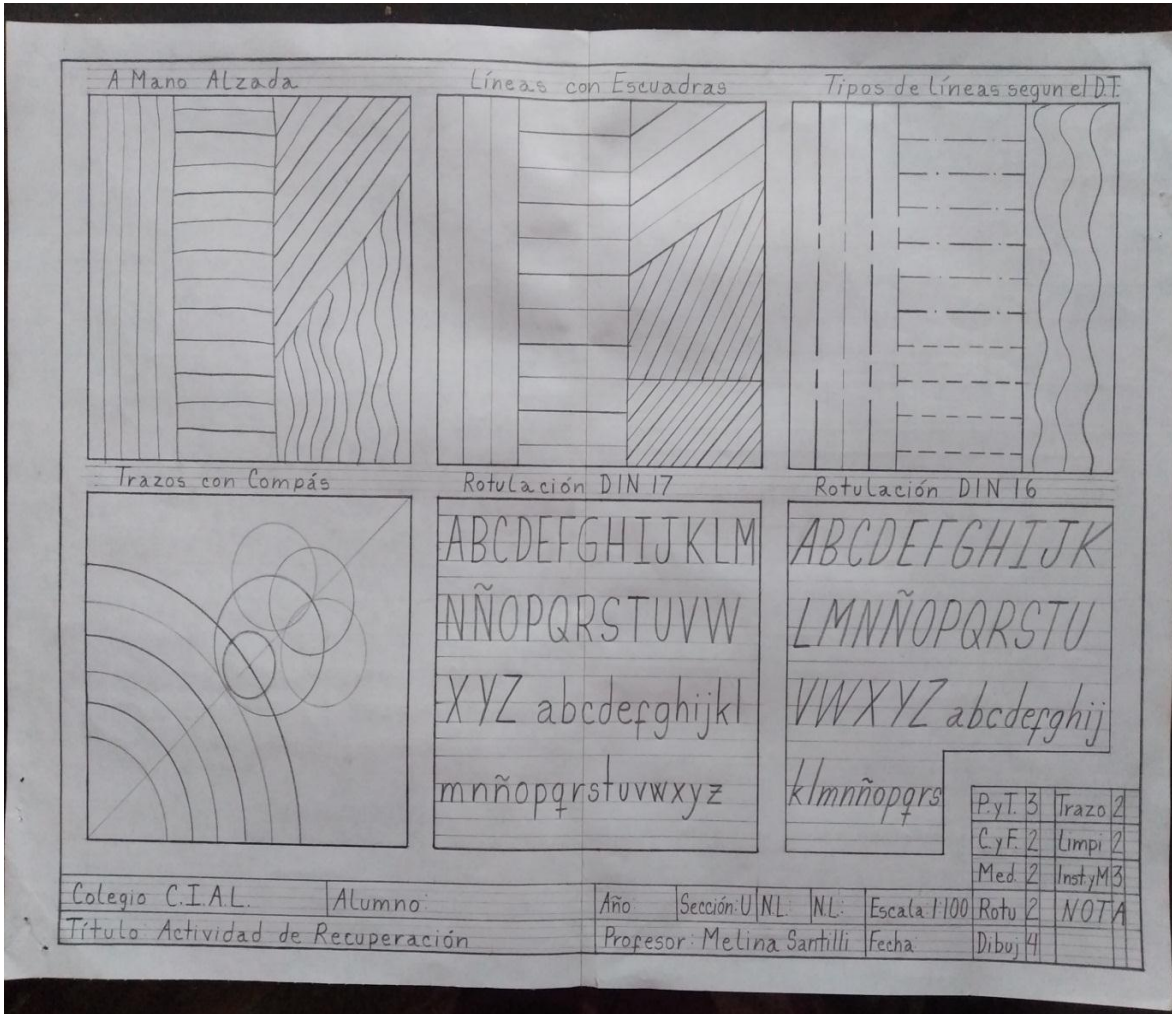 A Mano Alzada
Líneas con Escuadras
Tipos de líneas segun el D.T.
Trazos con Compás
Rotulación DIN 17
ABCDEFGHIJKLM
NÑOPQRSTUVW
XYZ abcdefghijkl
mnñopqrstuvwxyz
Rotulación DIN 16
ABCDEFGHIJK
LMNÑOPQRSTU
VWXYZ abcdefghij
klmnñopqrs
P.yT. 3 Trazo 2
C.yF. 2 Limpi 2
Med. 2 Inst.yM 3
Rotu 2 NOTA
Dibuj 4
Colegio C.I.A.L. Alumno: Año Sección: U N.L. N.L: Escala: 1:100
Título: Actividad de Recuperación Profesor: Melina Santilli Fecha